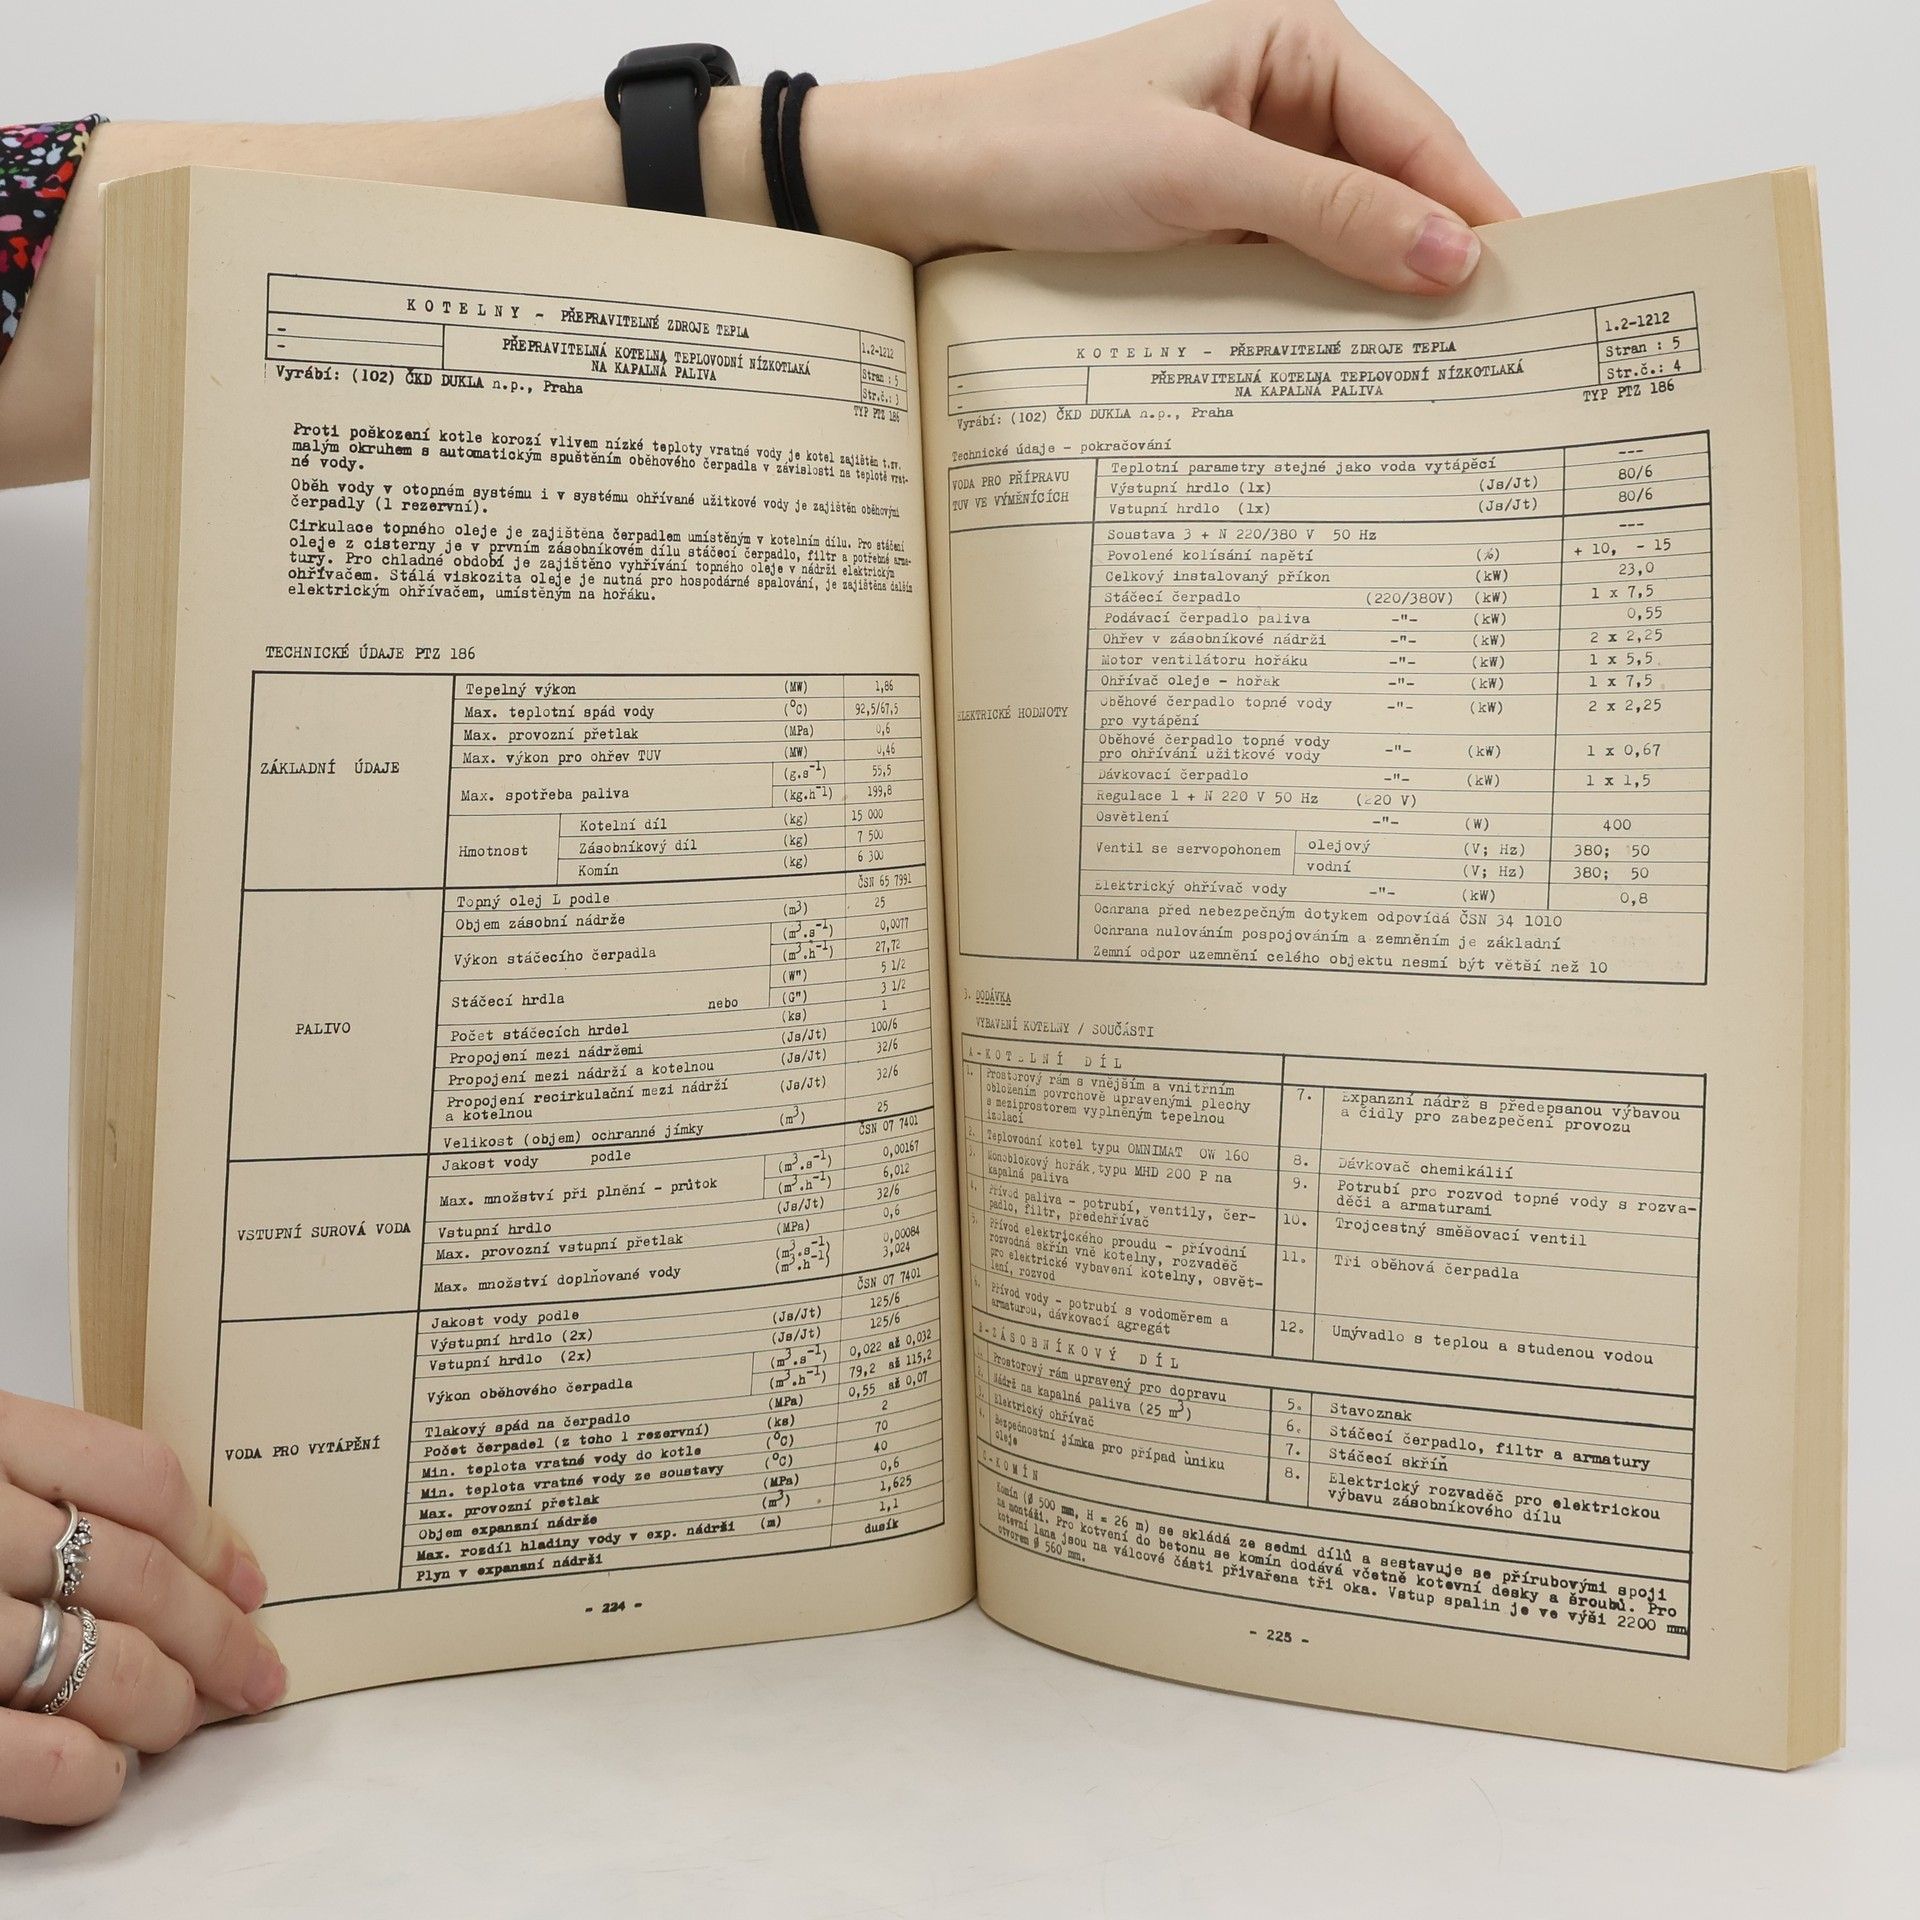 K O T E L N Y - PŘEPRAVITELNÉ ZDROJE TEPLA
1.2-1212
-
-
PŘEPRAVITELNÁ KOTELNA TEPLOVODNÍ NÍZKOTLAKÁ
NA KAPALNÁ PALIVA
Stran : 5
Str.č.: 3
Vyrábí: (102) ČKD DUKLA n.p., Praha
TYP PTZ 186
Proti poškození kotle korozí vlivem nízké teploty vratné vody je kotel zajištěn t.zv.
malým okruhem s automatickým spuštěním oběhového čerpadla v závislosti na teplotě vrat-
né vody.
Oběh vody v otopném systému i v systému ohřívané užitkové vody je zajištěn oběhovými
čerpadly (1 rezervní).
Cirkulace topného oleje je zajištěna čerpadlem umístěným v kotelním dílu. Pro stáčení
oleje z cisterny je v prvním zásobníkovém dílu stáčecí čerpadlo, filtr a potřebné arma-
tury. Pro chladné období je zajištěno vyhřívání topného oleje v nádrži elektrickým
ohřívačem. Stálá viskozita oleje je nutná pro hospodárné spalování, je zajištěna dalším
elektrickým ohřívačem, umístěným na hořáku.
TECHNICKÉ ÚDAJE PTZ 186
ZÁKLADNÍ ÚDAJE
Tepelný výkon (MW) 1,86
Max. teplotní spád vody (°C) 92,5/67,5
Max. provozní přetlak (MPa) 0,6
Max. výkon pro ohřev TUV (MW) 0,46
Max. spotřeba paliva (g.s-1) 55,5
(kg.h-1) 199,8
Hmotnost Kotelní díl (kg) 15 000
Zásobníkový díl (kg) 7 500
Komín (kg) 6 300
PALIVO
Topný olej L podle ČSN 65 7991
Objem zásobní nádrže (m3) 25
Výkon stáčecího čerpadla (m3.s-1) 0,0077
(m3.h-1) 27,72
Stáčecí hrdla (W") 5 1/2
nebo (G") 3 1/2
Počet stáčecích hrdel (ks) 1
Propojení mezi nádržemi (Js/Jt) 100/6
Propojení mezi nádrží a kotelnou (Js/Jt) 32/6
Propojení recirkulační mezi nádrží
a kotelnou (Js/Jt) 32/6
Velikost (objem) ochranné jímky (m3) 25
VSTUPNÍ SUROVÁ VODA
Jakost vody podle ČSN 07 7401
Max. množství při plnění - průtok (m3.s-1) 0,00167
(m3.h-1) 6,012
Vstupní hrdlo (Js/Jt) 32/6
Max. provozní vstupní přetlak (MPa) 0,6
Max. množství doplňované vody (m3.s-1) 0,00084
(m3.h-1) 3,024
VODA PRO VYTÁPĚNÍ
Jakost vody podle ČSN 07 7401
Výstupní hrdlo (2x) (Js/Jt) 125/6
Vstupní hrdlo (2x) (Js/Jt) 125/6
Výkon oběhového čerpadla (m3.s-1) 0,022 až 0,032
(m3.h-1) 79,2 až 115,2
Tlakový spád na čerpadlo (MPa) 0,55 až 0,07
Počet čerpadel (z toho 1 rezervní) (ks) 2
Min. teplota vratné vody do kotle (°C) 70
Min. teplota vratné vody ze soustavy (°C) 40
Max. provozní přetlak (MPa) 0,6
Objem expansní nádrže (m3) 1,625
Max. rozdíl hladiny vody v exp. nádrži (m) 1,1
Plyn v expansní nádrži dusík
- 224 -
K O T E L N Y - PŘEPRAVITELNÉ ZDROJE TEPLA
1.2-1212
-
-
PŘEPRAVITELNÁ KOTELNA TEPLOVODNÍ NÍZKOTLAKÁ
NA KAPALNÁ PALIVA
Stran : 5
Str.č.: 4
Vyrábí: (102) ČKD DUKLA n.p., Praha
TYP PTZ 186
Technické údaje - pokračování
VODA PRO PŘÍPRAVU
TUV VE VÝMĚNÍCÍCH
Teplotní parametry stejné jako voda vytápěcí ---
Výstupní hrdlo (1x) (Js/Jt) 80/6
Vstupní hrdlo (1x) (Js/Jt) 80/6
ELEKTRICKÉ HODNOTY
Soustava 3 + N 220/380 V 50 Hz ---
Povolené kolísání napětí (%) + 10, - 15
Celkový instalovaný příkon (kW) 23,0
Stáčecí čerpadlo (220/380V) (kW) 1 x 7,5
Podávací čerpadlo paliva -"- (kW) 0,55
Ohřev v zásobníkové nádrži -"- (kW) 2 x 2,25
Motor ventilátoru hořáku -"- (kW) 1 x 5,5
Ohřívač oleje - hořák -"- (kW) 1 x 7,5
Oběhové čerpadlo topné vody
pro vytápění -"- (kW) 2 x 2,25
Oběhové čerpadlo topné vody
pro ohřívání užitkové vody -"- (kW) 1 x 0,67
Dávkovací čerpadlo -"- (kW) 1 x 1,5
Regulace 1 + N 220 V 50 Hz (220 V)
Osvětlení -"- (W) 400
Ventil se servopohonem olejový (V; Hz) 380; 50
vodní (V; Hz) 380; 50
Elektrický ohřívač vody -"- (kW) 0,8
Ochrana před nebezpečným dotykem odpovídá ČSN 34 1010
Ochrana nulováním pospojováním a zemněním je základní
Zemní odpor uzemnění celého objektu nesmí být větší než 10
3. DODÁVKA
VYBAVENÍ KOTELNY / SOUČÁSTI
A - K O T E L N Í D Í L
1. Prostorový rám s vnějším a vnitřním
obložením povrchově upravenými plechy
s meziprostorem vyplněným tepelnou
izolací
2. Teplovodní kotel typu OMNIMAT OW 160
3. Monoblokový hořák typu MHD 200 P na
kapalná paliva
4. Přívod paliva - potrubí, ventily, čer-
padlo, filtr, předehřívač
5. Přívod elektrického proudu - přívodní
rozvodná skříň vně kotelny, rozvaděč
pro elektrické vybavení kotelny, osvět-
lení, rozvod
6. Přívod vody - potrubí s vodoměrem a
armaturou, dávkovací agregát
7. Expanzní nádrž s předepsanou výbavou
a čidly pro zabezpečení provozu
8. Dávkovač chemikálií
9. Potrubí pro rozvod topné vody s rozva-
děči a armaturami
10. Trojcestný směšovací ventil
11. Tři oběhová čerpadla
12. Umývadlo s teplou a studenou vodou
B - Z Á S O B N Í K O V Ý D Í L
1. Prostorový rám upravený pro dopravu
2. Nádrž na kapalná paliva (25 m3)
3. Elektrický ohřívač
4. Bezpečnostní jímka pro případ úniku
oleje
5. Stavoznak
6. Stáčecí čerpadlo, filtr a armatury
7. Stáčecí skříň
8. Elektrický rozvaděč pro elektrickou
výbavu zásobníkového dílu
C - K O M Í N
Komín (ø 500 mm, H = 26 m) se skládá ze sedmi dílů a sestavuje se přírubovými spoji
na montáži. Pro kotvení do betonu se komín dodává včetně kotevní desky a šroubů. Pro
kotevní lana jsou na válcové části přivařena tři oka. Vstup spalin je ve výši 2200 mm
otvorem ø 560 mm.
- 225 -